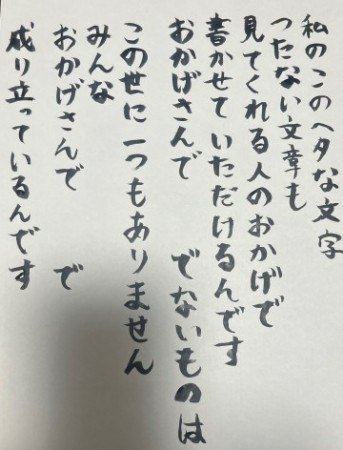 私のこのヘタな文字
つたない文章も
見てくれる人のおかげで
書かせていただけるんです
おかげさんで　でないものは
この世に一つもありません
みんな
おかげさんで　で
成り立っているんです